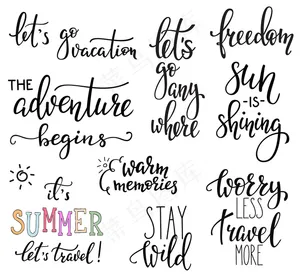 let's go
vacation
let's
go
any
where
freedom
THE
adventure
begins
sun
-is-
shining
warm
memories
it's
SUMMER
let's travel!
STAY
wild
worry
LESS
travel
MORE